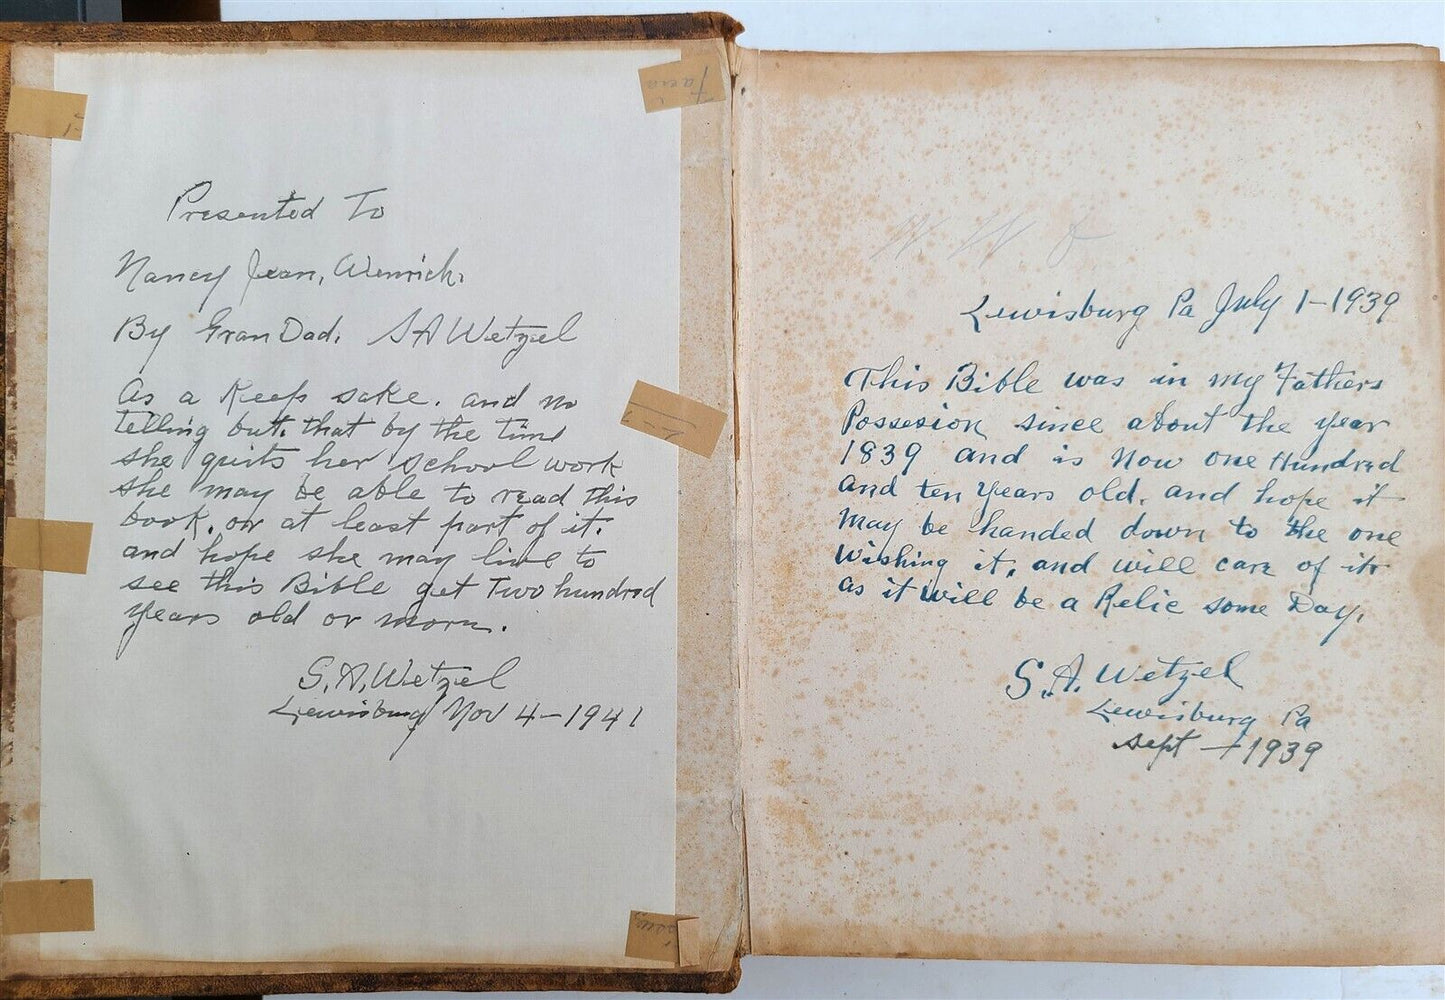 Presented To
Nancy Jean, Wenrich.
By GranDad. S A Wetzel
As a Keep sake. and no
telling but. that by the time
she quits her school work
she may be able to read this
book. or at least part of it.
and hope she may live to
see this Bible get Two hundred
years old or more.
S. A. Wetzel
Lewisburg Nov 4 - 1941
Lewisburg Pa July 1 - 1939
This Bible was in my Fathers
Possesion since about the year
1839 and is Now one Hundred
and ten years old. and hope it
May be handed down to the one
Wishing it. and will care of it
as it will be a Relic some Day.
S. A. Wetzel
Lewisburg Pa
Sept - 1939